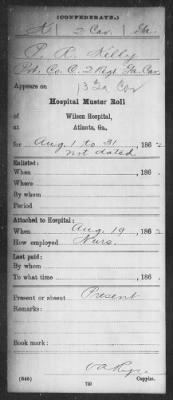 (CONFEDERATE.)
K 2 Cav. Ga.
P. R. Kelly
Pvt. Co. C. 2 Regt Ga. Cav.
Appears on
Hospital Muster Roll
of Wilson Hospital,
at Atlanta, Ga.,
for Aug. 1 to 31, 186
not dated
Enlisted:
When , 186 .
Where
By whom
Period
Attached to Hospital:
When Aug. 19 , 186 2
How employed Nurse.
Last paid:
By whom
To what time , 186 .
Present or absent Present
Remarks:
Book mark:
(546) Copyist.